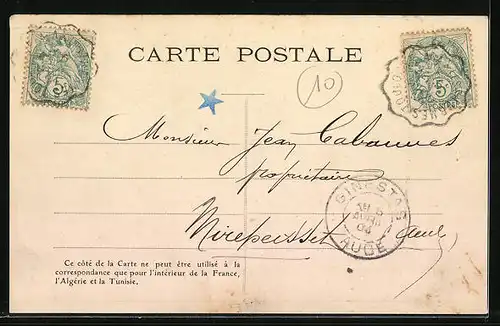 CARTE POSTALE
5
5
10
Monsieur Jean Cabannes
propriétaire
Mirepeisset Aude
GINESTAS
AVRIL
04
AUDE
Ce côté de la Carte ne peut être utilisé à la
correspondance que pour l'intérieur de la France,
l'Algérie et la Tunisie.